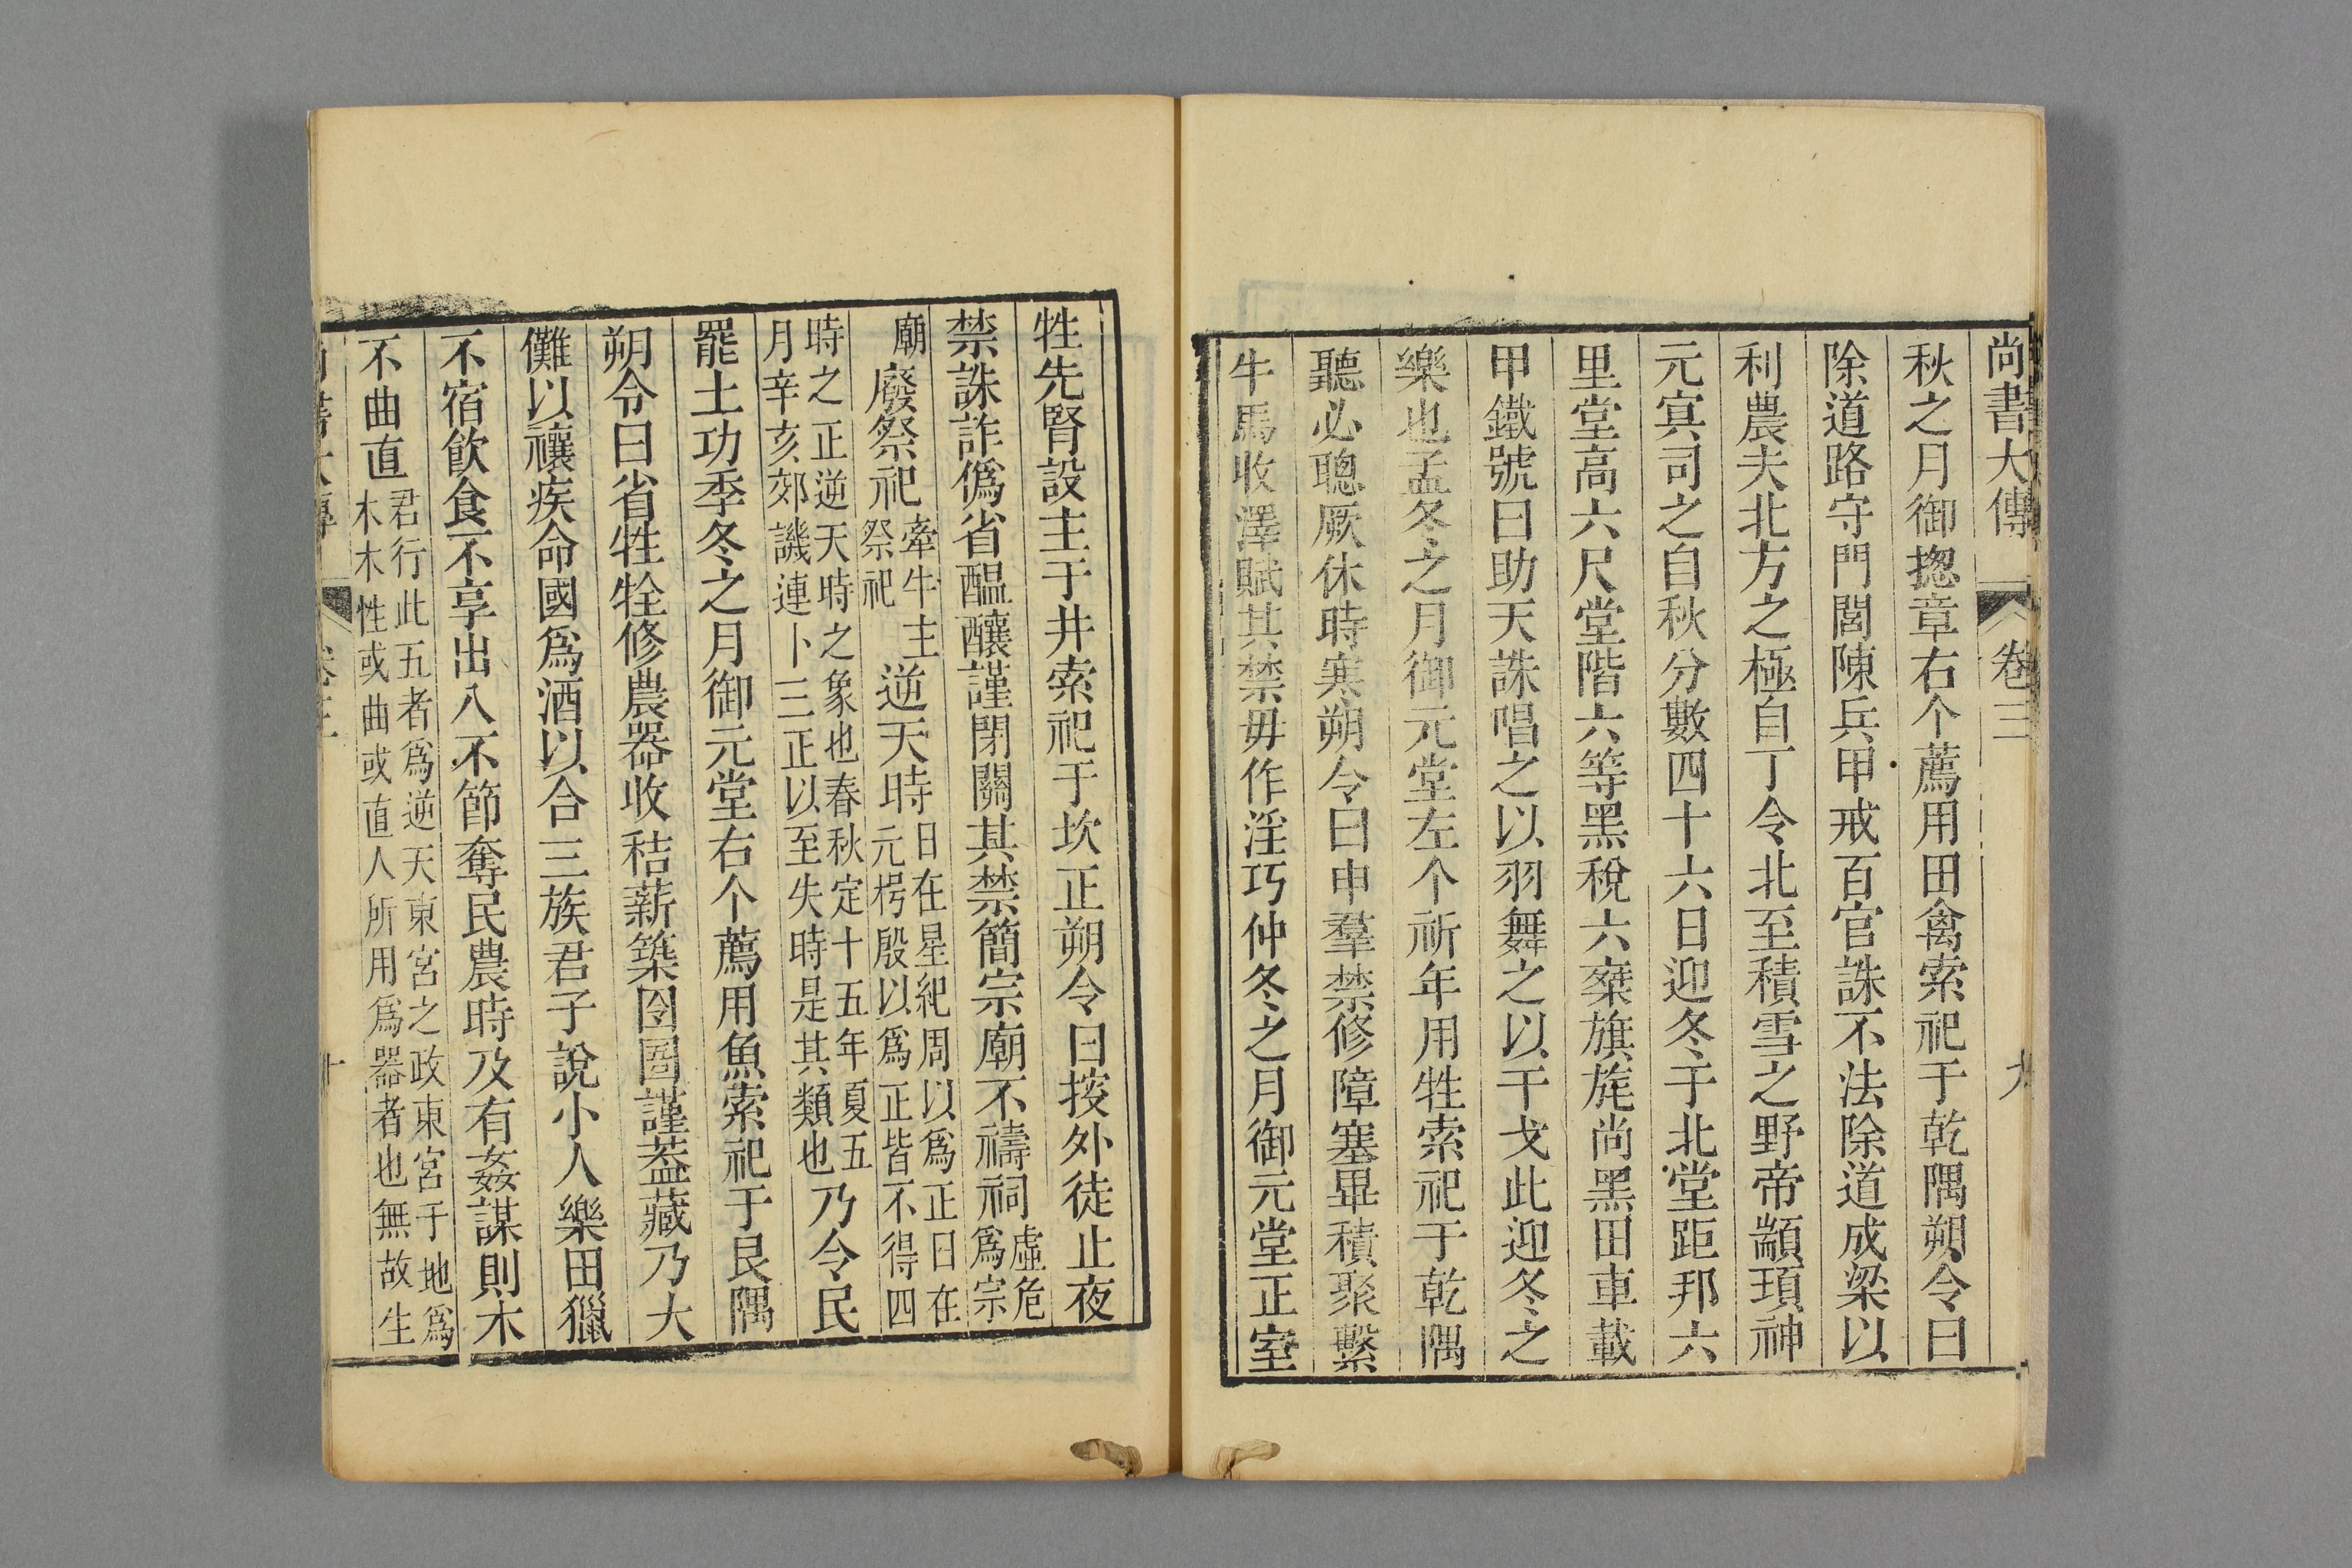 尚書大傳 卷三 九
秋之月御揔章右个薦用田禽索祀于乾隅朔令曰
除道路守門閭陳兵甲戒百官誅不法除道成梁以
利農夫北方之極自丁令北至積雪之野帝顓頊神
元冥司之自秋分數四十六日迎冬于北堂距邦六
里堂高六尺堂階六等黑稅六乘旗旄尚黑田車載
甲鐵號曰助天誅唱之以羽舞之以干戈此迎冬之
樂也孟冬之月御元堂左个祈年用牲索祀于乾隅
聽必聰厥休時寒朔令曰申羣禁修障塞畢積聚繫
牛馬收澤賦其禁毋作淫巧仲冬之月御元堂正室
牲先腎設主于井索祀于坎正朔令曰按外徒止夜
禁誅詐僞省醞釀謹閉關其禁簡宗廟不禱祠虛危爲宗
廟廢祭祀牽牛主祭祀逆天時日在星紀周以爲正日在元枵殷以爲正皆不得四
時之正逆天時之象也春秋定十五年夏五月辛亥郊譏連卜三正以至失時是其類也乃令民
罷土功季冬之月御元堂右个薦用魚索祀于艮隅
朔令曰省牲牷修農器收秸薪築囹圄謹葢藏乃大
儺以禳疾命國爲酒以合三族君子說小人樂田獵
不宿飲食不享出入不節奪民農時及有姦謀則木
不曲直君行此五者爲逆天東宮之政東宮于地爲木木性或曲或直人所用爲器者也無故生
尚書大傳 卷三 十